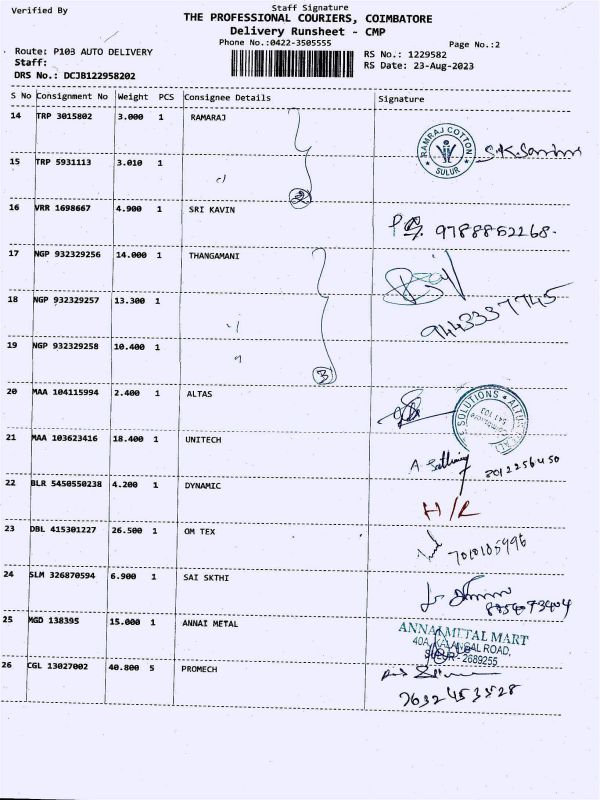 Verified By
Staff Signature
THE PROFESSIONAL COURIERS, COIMBATORE
Delivery Runsheet - CMP
Phone No.:0422-3505555
Page No.:2
Route: P103 AUTO DELIVERY
RS No.: 1229582
Staff:
RS Date: 23-Aug-2023
DRS No.: DCJB122958202
S No Consignment No Weight PCS Consignee Details Signature
14 TRP 3015802 3.000 1 RAMARAJ
RAMRAJ COTTON
SULUR
15 TRP 5931113 3.010 1
2
16 VRR 1698667 4.900 1 SRI KAVIN
9788852268.
17 NGP 932329256 14.000 1 THANGAMANI
18 NGP 932329257 13.300 1
9443337745
19 NGP 932329258 10.400 1
3
20 MAA 104115994 2.400 1 ALTAS
SOLUTIONS
21 MAA 103623416 18.400 1 UNITECH
22 BLR 5450550238 4.200 1 DYNAMIC
H/R
23 DBL 415301227 26.500 1 OM TEX
7010105996
24 SLM 326870594 6.900 1 SAI SKTHI
25 MGD 138395 15.000 1 ANNAI METAL
ANNAI METAL MART
40A, KALANGAL ROAD,
SULUR - 2689255
26 CGL 13027002 40.800 5 PROMECH
7632453528